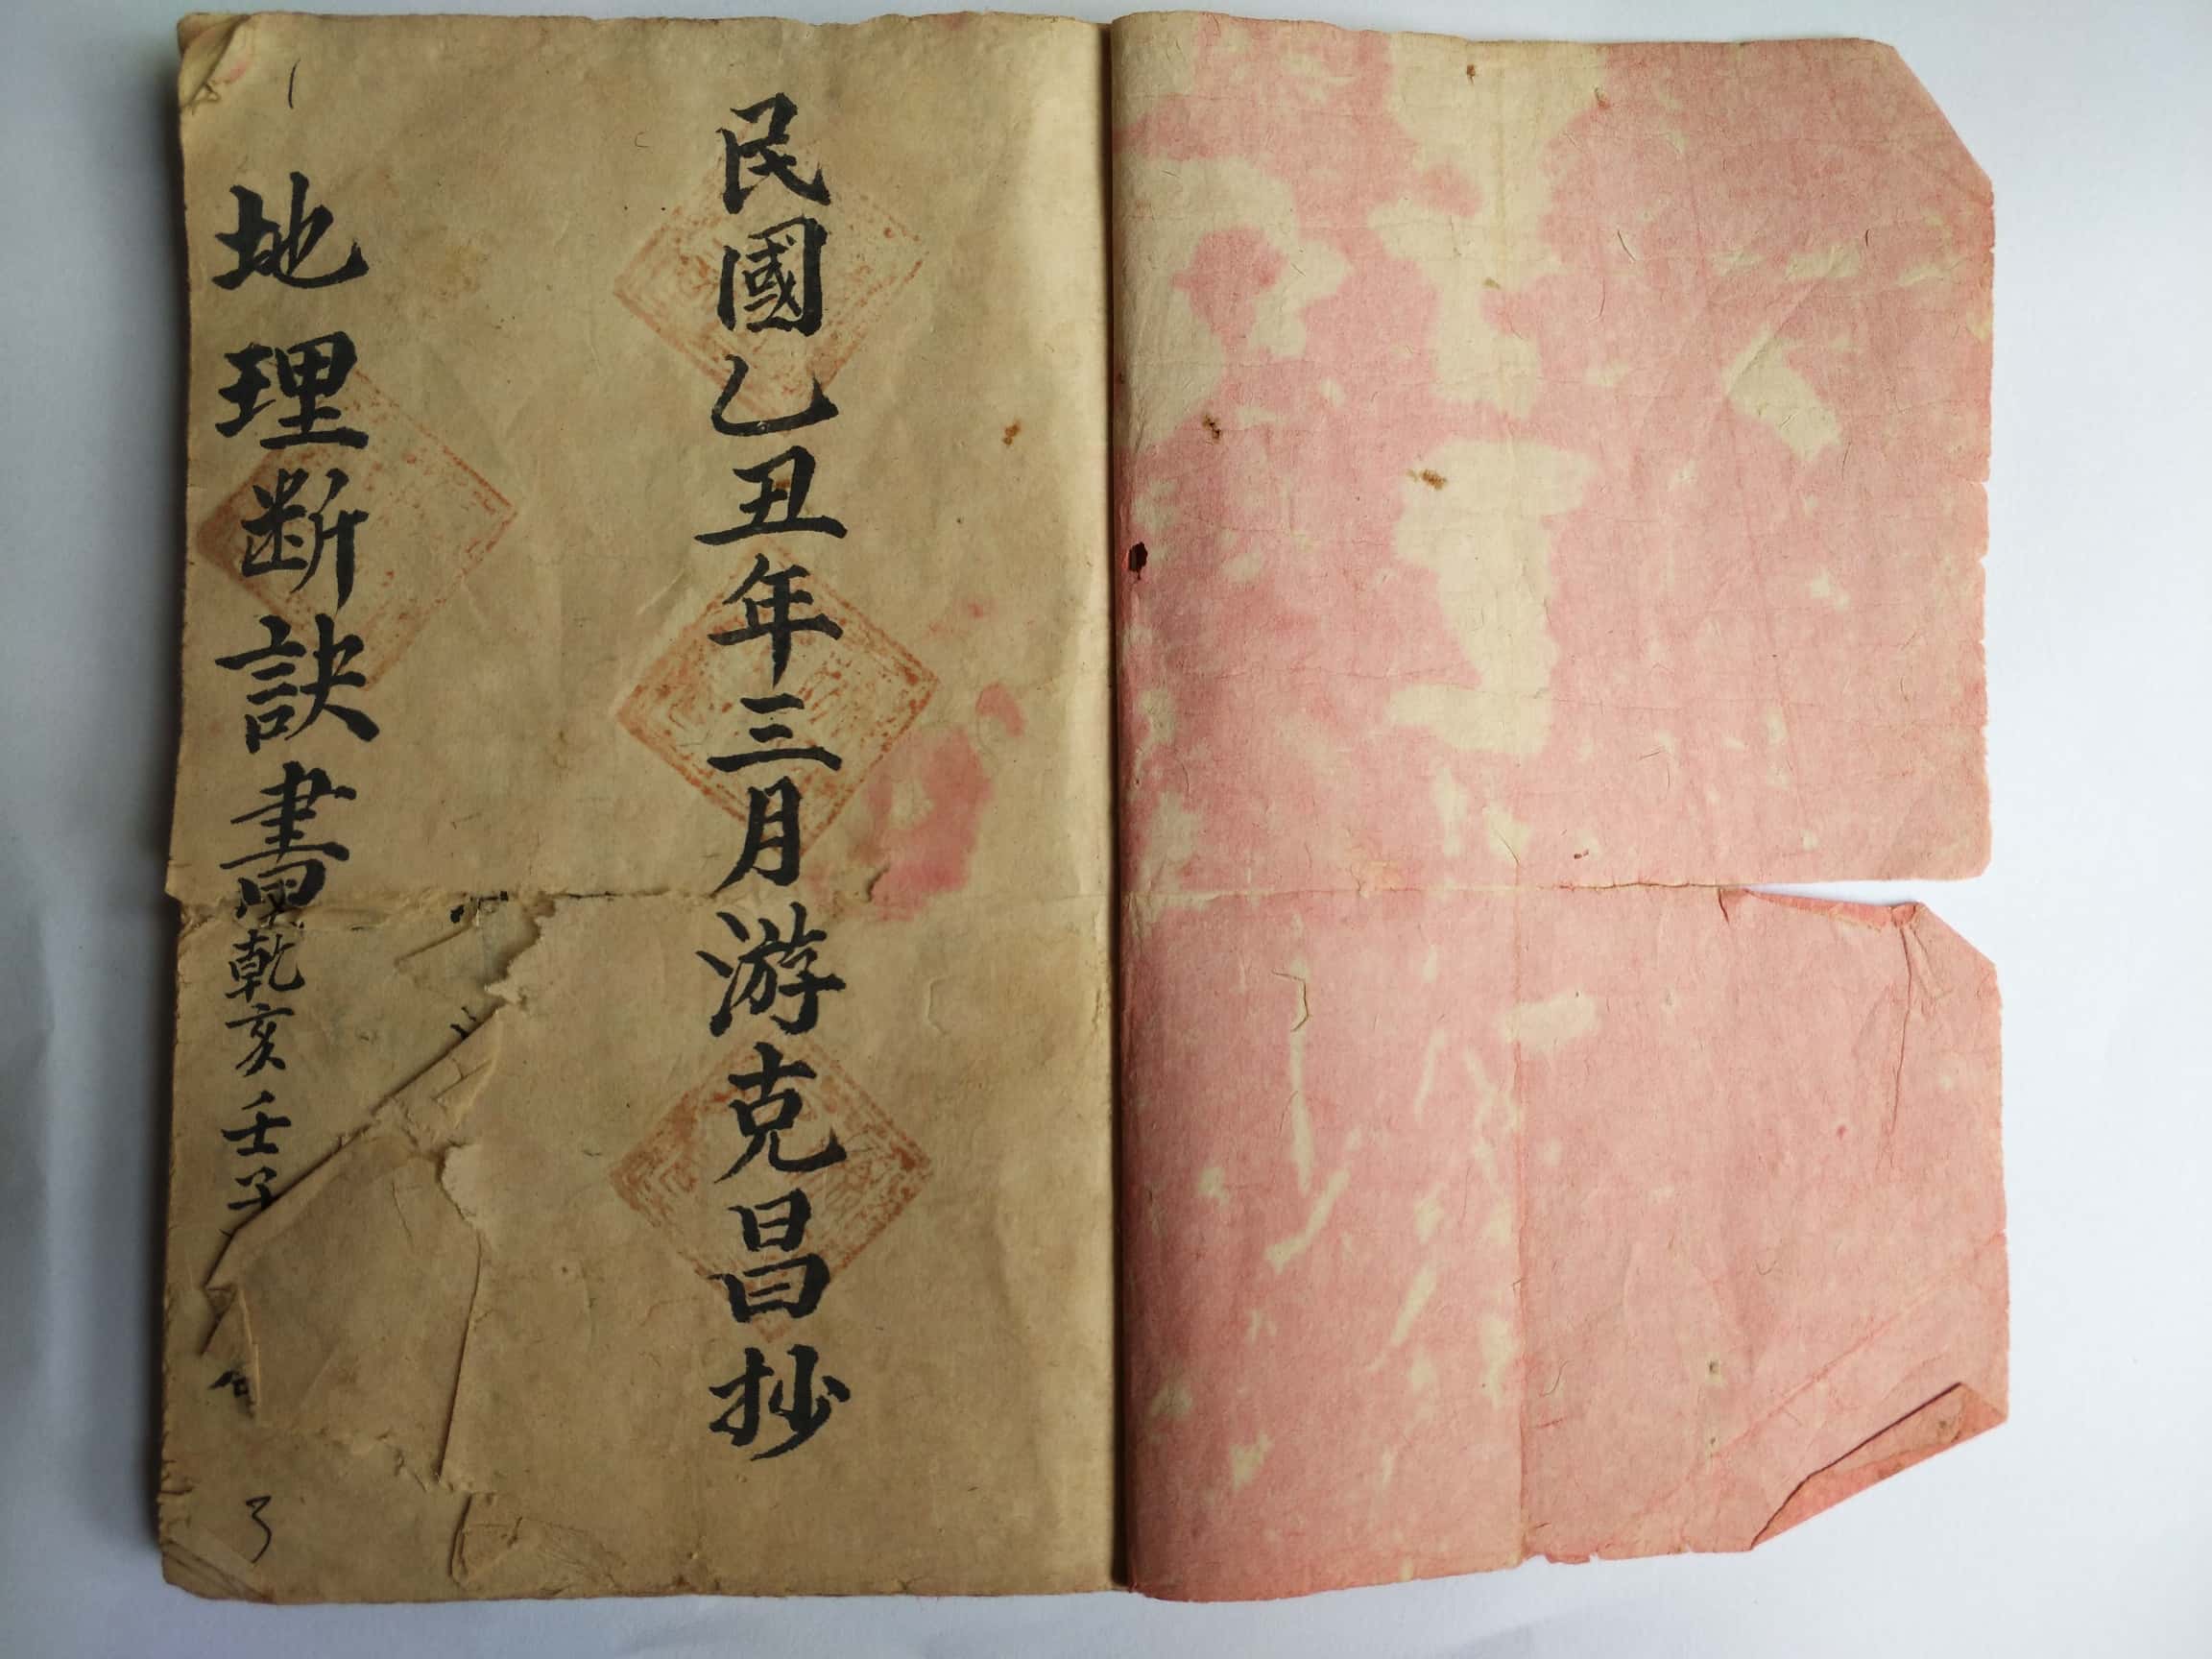 民國乙丑年三月游克昌抄
地理斷訣書
乾亥壬子